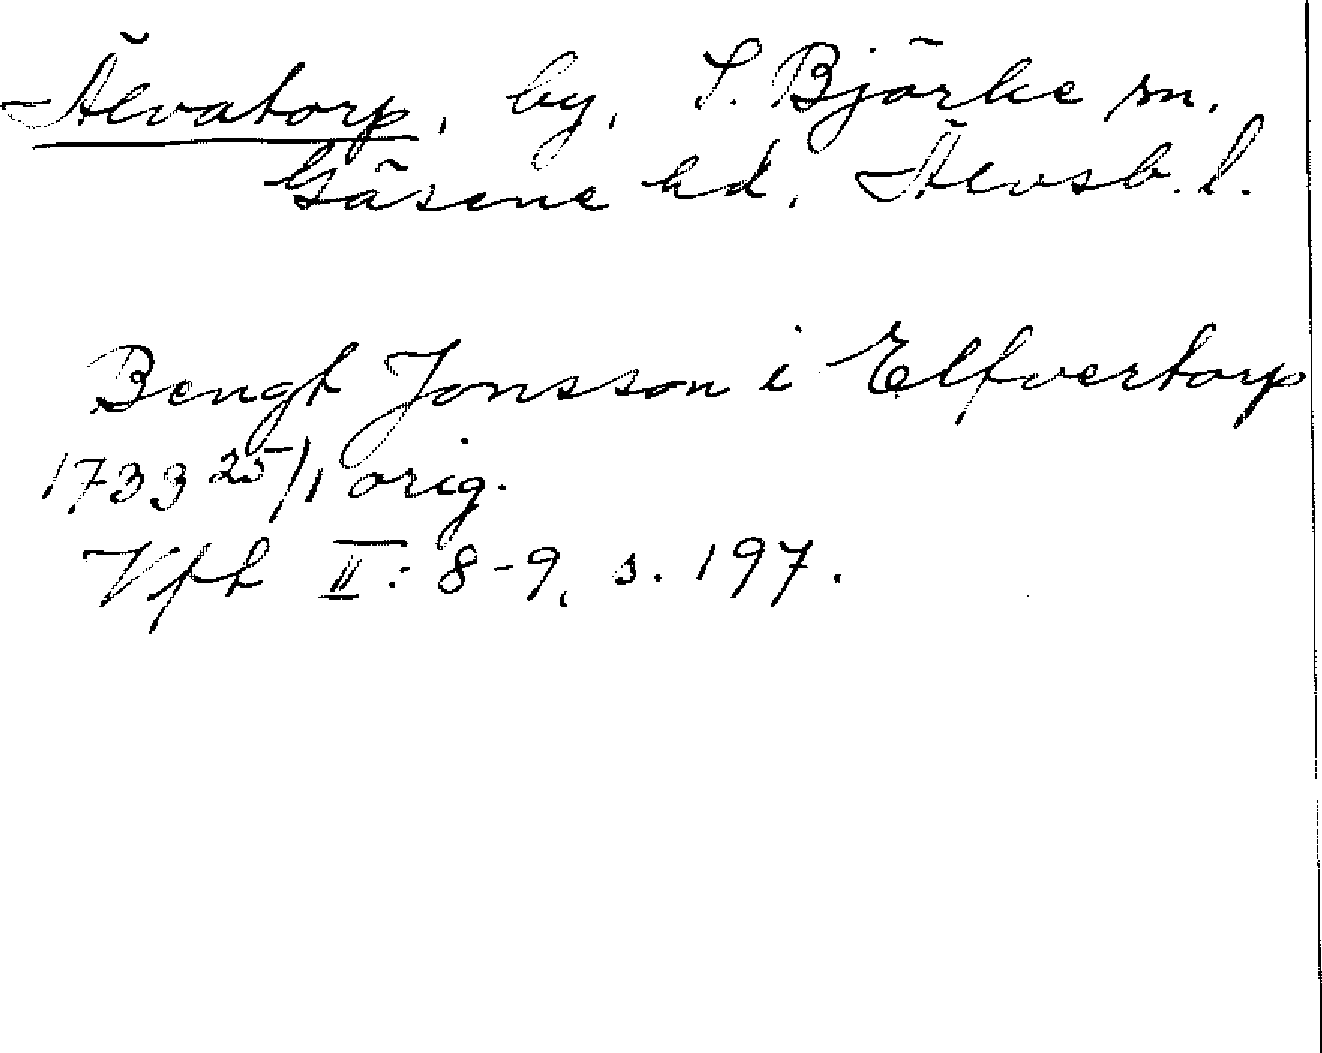 Älvatorp, by, S. Björke sn.
Gäsene hd, Älvsb. l.
Bengt Jonsson i Elfvertorp
1733 25/1 orig.
Vfh II: 8-9, s. 197.